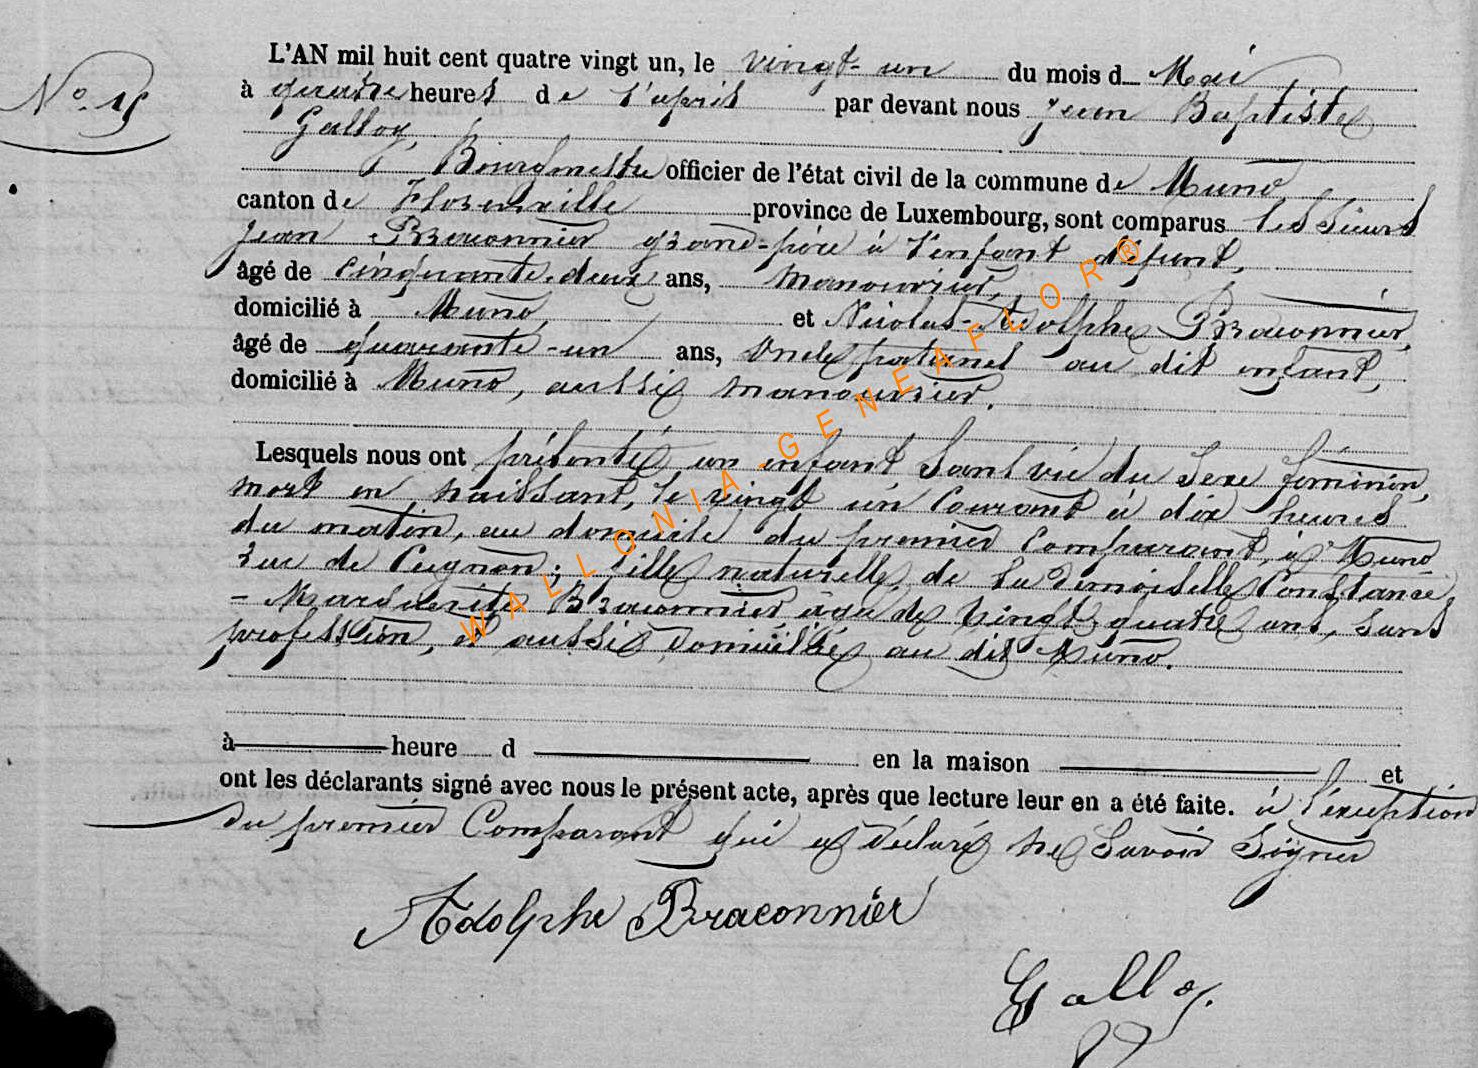 L'AN mil huit cent quatre vingt un, le vingt-un du mois d Mai
No. 15
à quatre heures de l'après par devant nous Jean Baptiste
Galloy,
Bourgmestre officier de l'état civil de la commune de Muno
canton de Florenville province de Luxembourg, sont comparus les Sieurs
Jean Braconnier grand-père à l'enfant défunt,
âgé de cinquante-deux ans, manouvrier,
domicilié à Muno, et Nicolas-Adolphe Braconnier,
âgé de quarante-un ans, oncle paternel au dit enfant,
domicilié à Muno, aussi manouvrier.
Lesquels nous ont présenté un enfant sans vie du sexe féminin,
mort en naissant, le vingt un courant à dix heures
du matin, au domicile du premier comparant, à Muno
rue de Cugnon; fille naturelle de la Demoiselle Constance
-Marguerite Braconnier âgée de vingt quatre ans, sans
profession, et aussi domiciliée au dit Muno.
à heure d en la maison et
ont les déclarants signé avec nous le présent acte, après que lecture leur en a été faite. à l'exception
du premier comparant qui a déclaré ne savoir signer
Adolphe Braconnier
Galloy.
WALLONIA-GENEAFLOR®